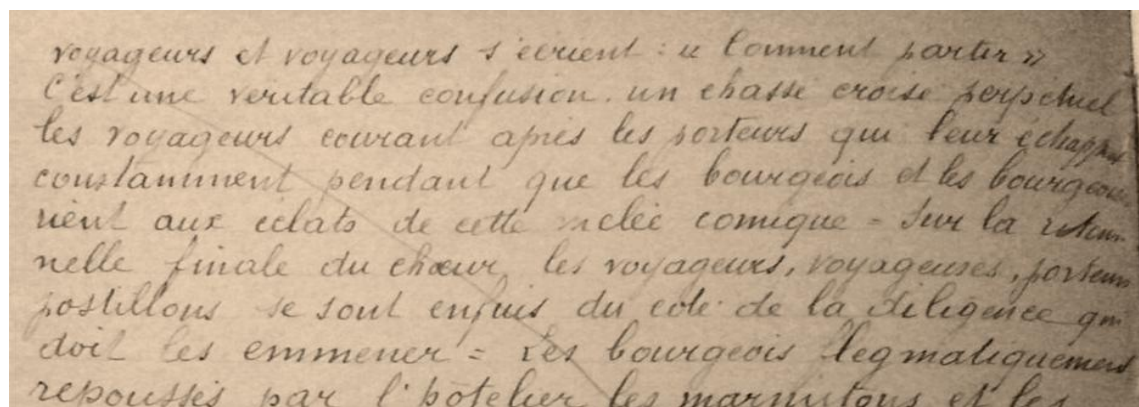 voyageurs et voyageurs s'écrient : « Comment partir »
C'est une veritable confusion. un chassé croisé perpétuel
les voyageurs courant après les porteurs qui leur échappent
constamment pendant que les bourgeois et les bourgeoises
rient aux éclats de cette mêlée comique = Sur la ritour
nelle finale du chœur, les voyageurs, voyageuses, porteurs
postillons se sont enfuis du coté de la diligence qui
doit les emmener = Les bourgeois flegmatiquement
repoussés par l'hôtelier, les marmitons et les